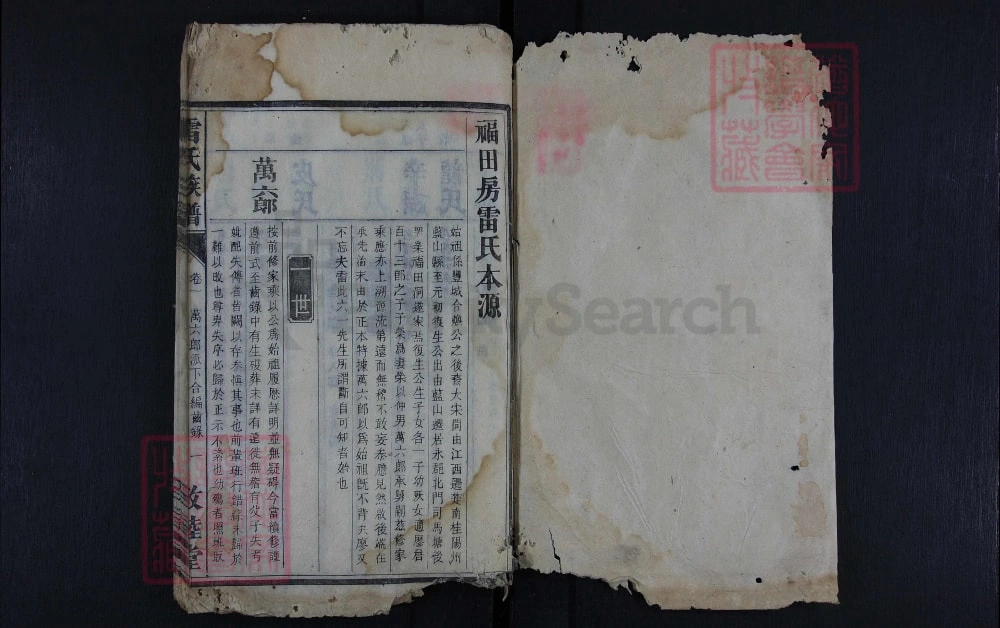 福田房雷氏本源
始祖係豐城合
公之後裔大宋間由江西遷
南桂陽州
藍山縣至元初復生公出由藍山遷居永
北門司馬塘後
業福田洞遂家焉復生公生子女各一子幼
女適廖君
百十三郎之子于榮爲妻榮以仲男萬六郎承
雷
修家
乘應亦上溯源流第遠而無稽不敢妄
然
後
在
承先治末由於正本特據萬六郎以爲始祖既不背夫廖又
不忘夫雷此六一先生所謂斷自可知者始也
萬六郎
一世
按前修家乘以公爲始祖履歷詳明並無疑碍今當續修謹
遵前式至齒錄中有生歿葬未詳有遷徙無
有父子失考
就配失傳者皆闕以存
慎其事也前輩班行錯綜未歸於
一難以改也尊卑失序必歸於正示不紊也幼殤者照班取
雷氏族譜
卷一
萬六郎派下合編齒錄
一
敦睦堂